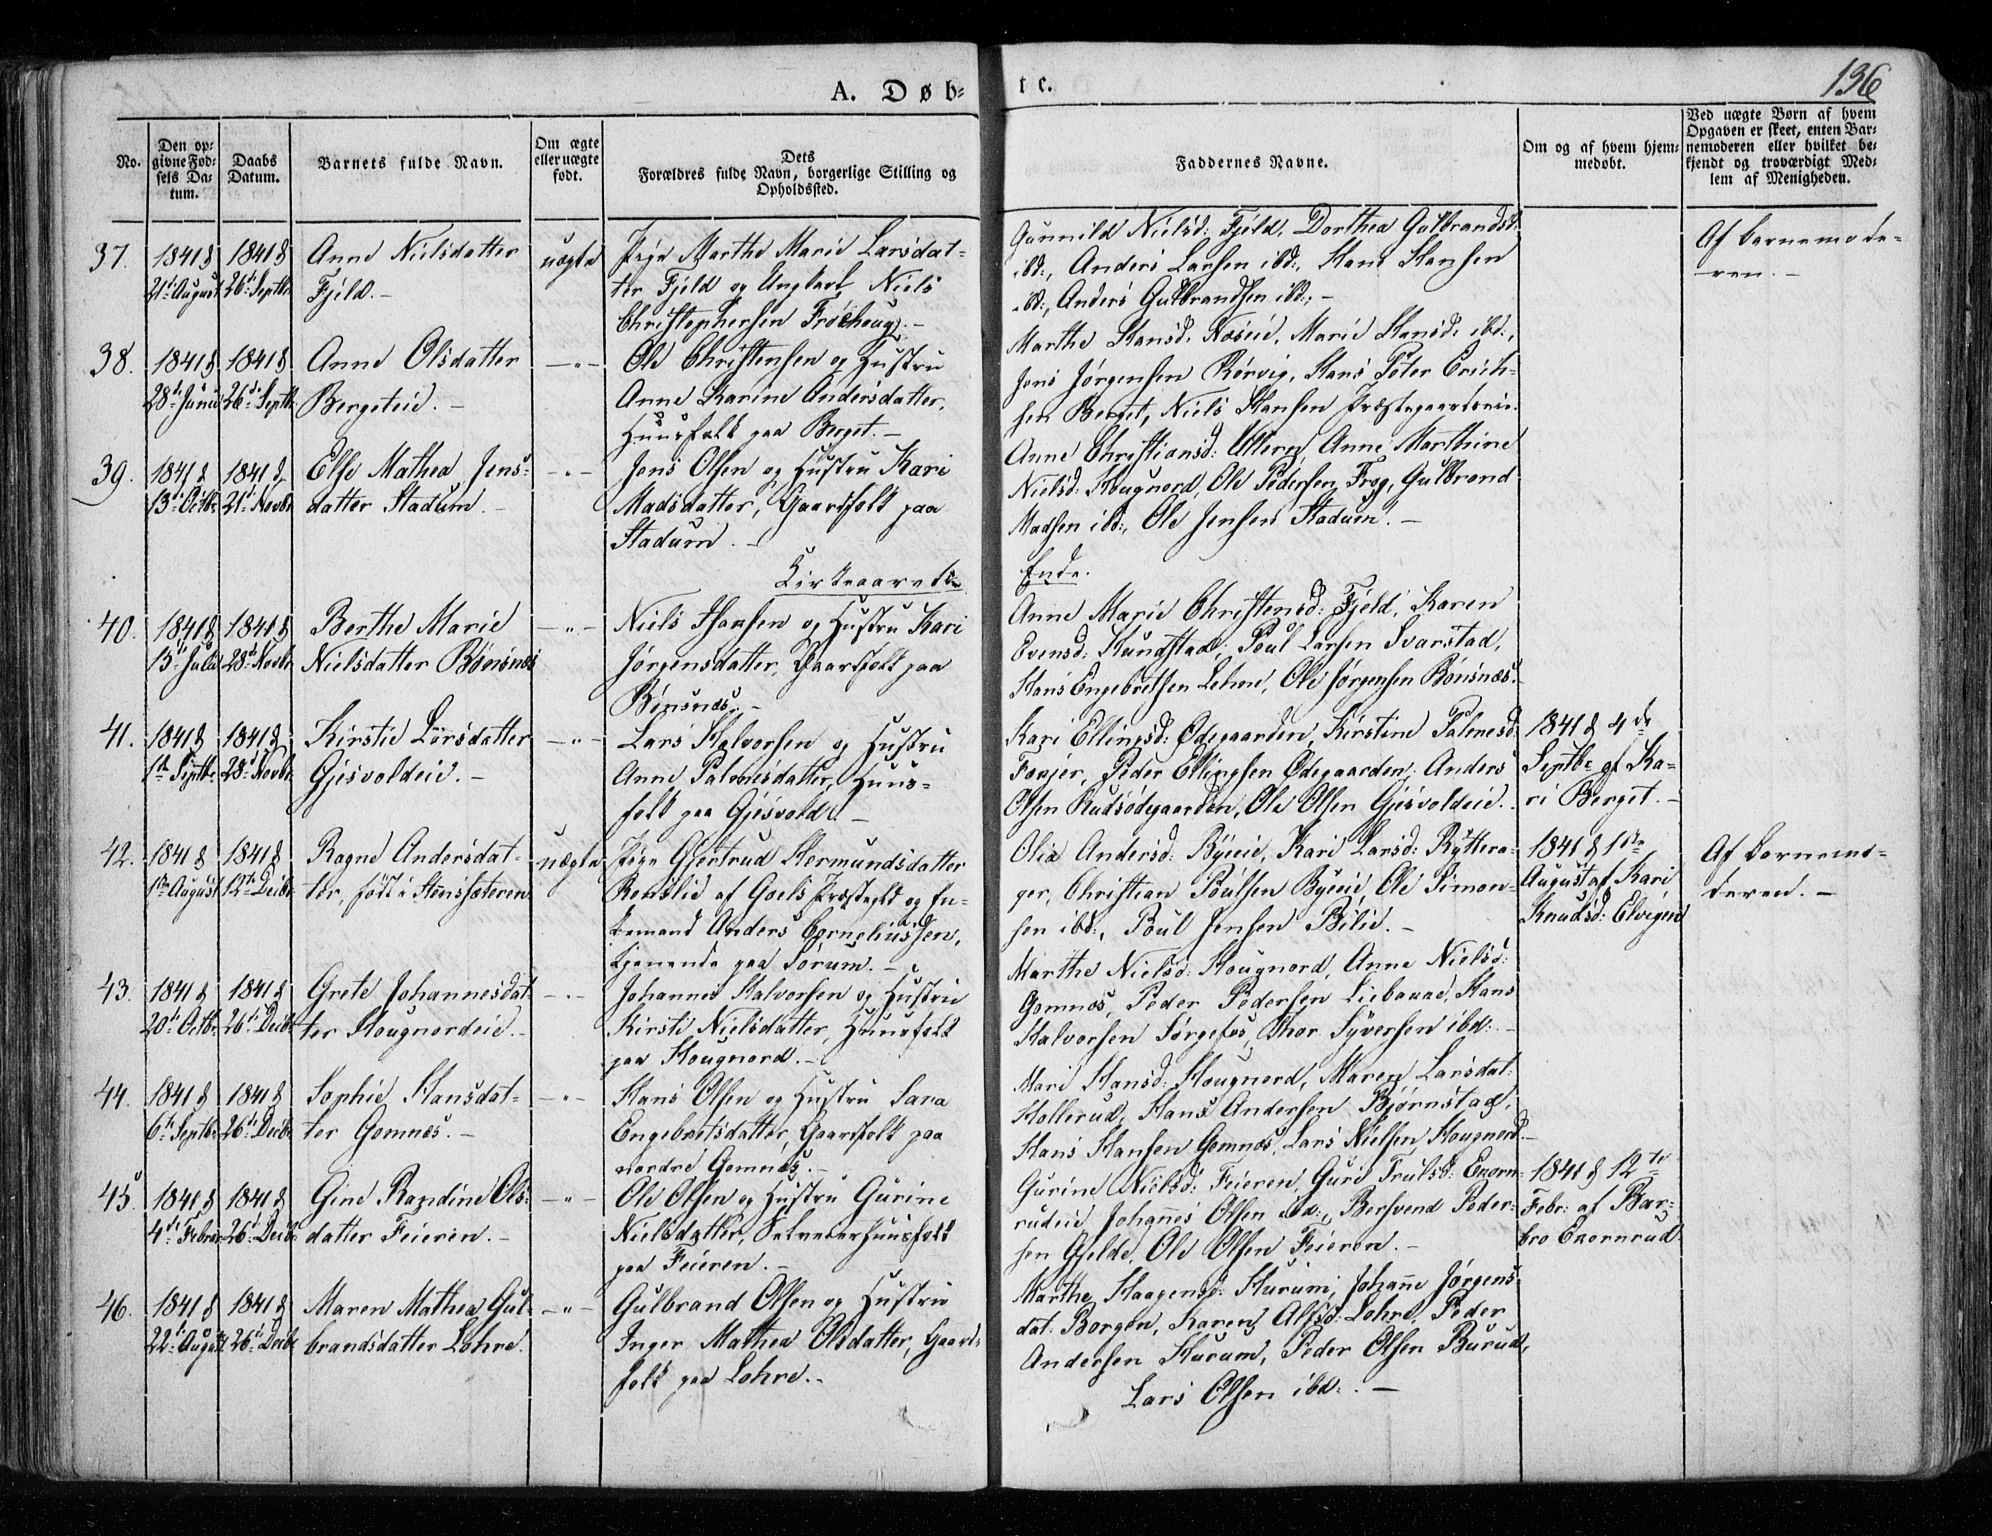 A. Døb-
te.
136
No.
Den op-
givne Fød-
sels Da-
tum.
Daabs
Datum.
Barnets fulde Navn.
Om ægte
eller uægte
født.
Dets
Forældres fulde Navn, borgerlige Stilling og
Opholdssted.
Faddernes Navne.
Om og af hvem hjem-
medøbt.
Ved uægte Børn af hvem
Opgaven er skeet, enten Bar-
nemoderen eller hvilket be-
kjendt og troværdigt Med-
lem af Menigheden.
37.
1841 d
21de August
1841 d
26de Septbr
Anne Nielsdatter
Fjeld.-
uægte
Pige Marthe Marie Larsdat-
ter Fjeld og Ungkarl Niels
Christophersen Frøshoug.-
Gunnild Nielsd: Fjeld, Dorthea Gulbrandsd:
ibd:, Anders Larsen ibd:, Hans Hansen
ibd:, Anders Gulbrandsen ibd:-
Af barnemode-
ren.-
38.
1841 d
28de Junii
1841 d
26de Septbr
Anne Olsdatter
Bergeteid.-
-"-
Ole Christensen og Hustru
Anne Karine Andersdatter,
Huusfolk paa Berget.-
Marthe Hansd: Næseie, Marie Hansd: ibd:,
Jens Jørgensen Rørvig, Hans Peter Erich-
sen Berget, Niels Hansen Præstegaardseie.
39.
1841 d
13de Octbr
1841 d
21de Novbr
Else Mathea Jens-
datter Stadum.-
-"-
Jens Olsen og Hustru Kari
Madsdatter, Gaardfolk paa
Stadum.-
Anne Christiansd: Ullern, Anne Marthine
Nielsd: Hougnord, Ole Pedersen Frog, Gulbrand
Madsen ibd:, Ole Jensen Stadum.-
Kirkeaarets
Ende.
40.
1841 d
13de Julii
1841 d
28de Novbr
Berthe Marie
Nielsdatter Bønsnæs
-"-
Niels Hansen og Hustru Kari
Jørgensdatter, Gaardfolk paa
Bønsnæs.-
Anne Marie Christensd: Fjeld, Karen
Evensd: Hundstad, Poul Larsen Svarstad,
Hans Engebretsen Lehne, Ole Jørgensen Bønsnæs.-
41.
1841 d
1ste Septbr
1841 d
28de Novbr
Kirstie Larsdatter
Gjesvoldeie.-
-"-
Lars Halvorsen og Hustru
Anne Palmesdatter, Huus-
folk paa Gjesvold.-
Kari Ellingsd: Ødegaarden, Kirstine Palmesd:
Fosjer, Peder Ellingsen Ødegaarden, Anders
Olsen Rudsødegaarden, Ole Olsen Gjesvoldeie.-
1841 d 4de
Septbr af Ka-
ri Berget.-
42.
1841 d
1ste August
1841 d
12te Decbr
Ragne Andersdat-
ter, født i Steinssæteren
uægte
Pige Gjertrud Hermundsdatter
Renslie af Goels Præstegld og En-
kemand Anders Corneliussen,
tjenende paa Sørum.-
Olia Andersd: Byeie, Kari Larsd: Ryttera-
ger, Christian Poulsen Byeie, Ole Simon-
sen ibd:, Poul Jensen Bilie.-
1841 d 1ste
August af Kari
Knudsd: Elvigen
Af barnemo-
deren.-
43.
1841 d
20de Octbr
1841 d
26de Decbr
Grete Johannesdat-
ter Hougnordeie.-
-"-
Johannes Halvorsen og Hustru
Kirsti Nielsdatter, Huusfolk
paa Hougnord.-
Marthe Nielsd: Hougnord, Anne Nielsd:
Gomnæs, Peder Pedersen Liebanne, Hans
Halvorsen Sørgefos, Thor Syversen ibd:-
44.
1841 d
6te Septbr
1841 d
26de Decbr
Sophie Hansdat-
ter Gomnæs.-
-"-
Hans Olsen og Hustru Sara
Engebretsdatter, Gaardfolk paa
nordre Gomnæs.-
Mari Hansd: Hougnord, Maren Larsdat:
Hollerud, Hans Andersen Bjørnstad,
Hans Hansen Gomnæs, Lars Nielsen Hougnord.-
45
1841 d
4de Februar
1841 d
26de Decbr
Gine Randine Ols-
datter Feieren.-
-"-
Ole Olsen og Hustru Gurine
Nielsdatter, Selveierhuusfolk
paa Feieren.-
Gurine Nielsd: Feieren, Guri Trulsd: Exorn-
rudeie, Johannes Olsen ibd:, Bersvend Peder-
sen Gjelde, Ole Olsen Feieren.-
1841 d 12te
Febr: af Bar-
bro Exornrud
46.
1841 d
22de August
1841 d
26de Decbr
Maren Mathea Gul-
brandsdatter Lohre.
-"-
Gulbrand Olsen og Hustru
Inger Mathea Olsdatter, Gaard-
folk paa Lohre.-
Marthe Haagensd: Hurum, Johanne Jørgens-
dat: Borgen, Karen Alfsd: Lohre, Peder
Andersen Hurum, Peder Olsen Burud,
Lars Olsen ibd:.-